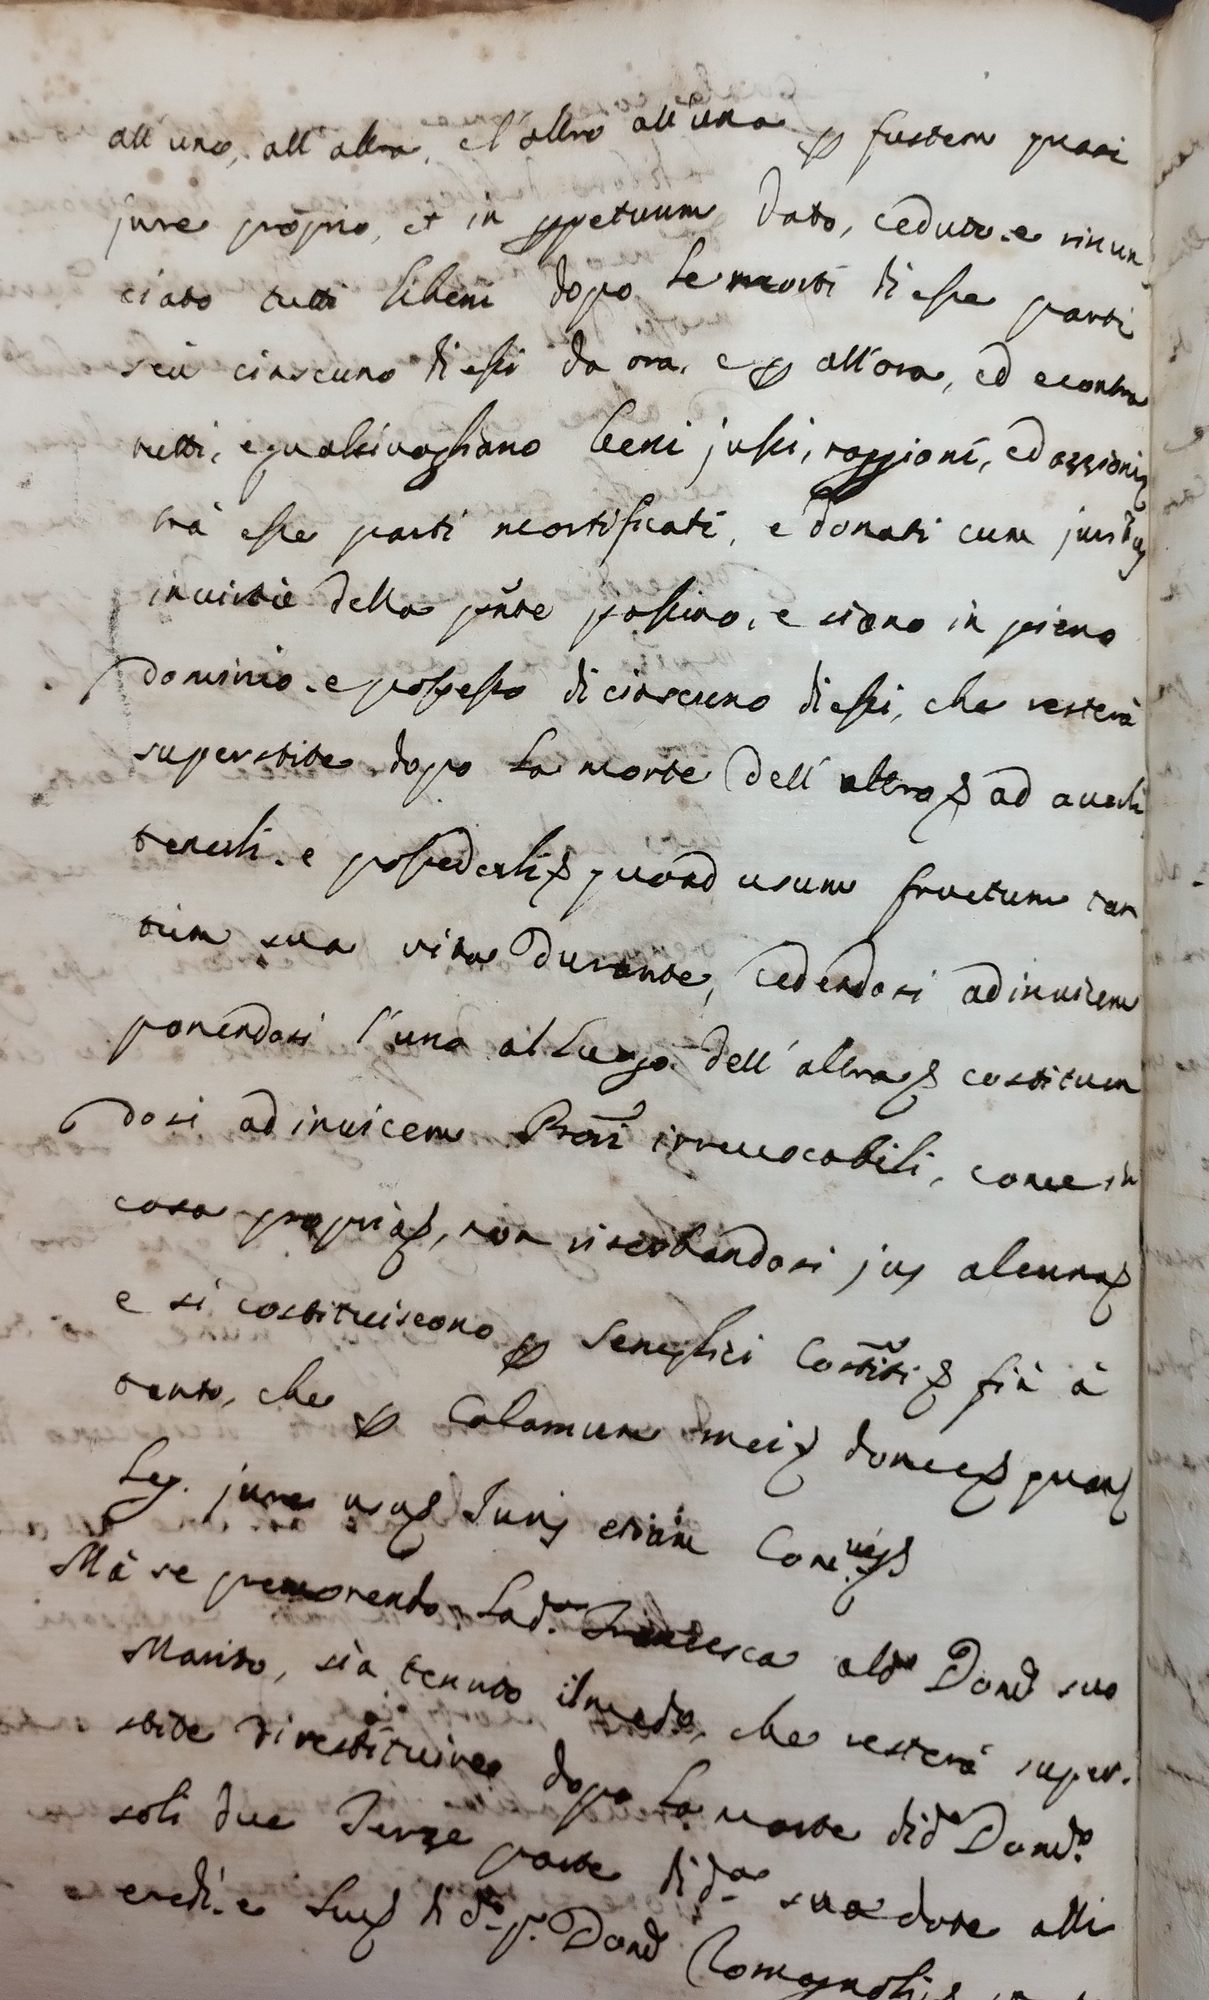 all'uno, all'altra, e l'altro all'una per fustem quasi
jure proprio, et in perpetuum dato, ceduto, e rinun
ciato tutti li beni dopo le morti di esse parti
seù ciascuno di essi da ora, e per all'ora, ed econtra
tutti, e qualsivogliano beni jussi, raggioni, ed azzioni
trà esse parti mortificati, e donati cum juribus
in virtù della pn̄te possino, e siano in pieno
dominio, e possesso di ciascuno di essi, che resterà
superstite dopo la morte dell'altro ad averli
tenerli, e possederli quoad usum fructum tan
tum sua vita durante, cedendosi ad invicem
ponendosi l'una al luogo dell'altra costituen
dosi ad invicem Prōri irrevocabili, come in
cosa propria, non riserbandosi jus alcuno
e si costituiscono per semplici Costiti fin à
tanto, che per Calamum mei donec quas
leg. jure usus Juris etiam
Mà se premorendo la da. Francesca al do Dond suo
Marito, sia tenuto il medo. che resterà super-
stite di restituire dopo la morte di do Dondo.
soli due Terze parte di da. sua dote alli
eredi, e di do. Dond Romagnoli